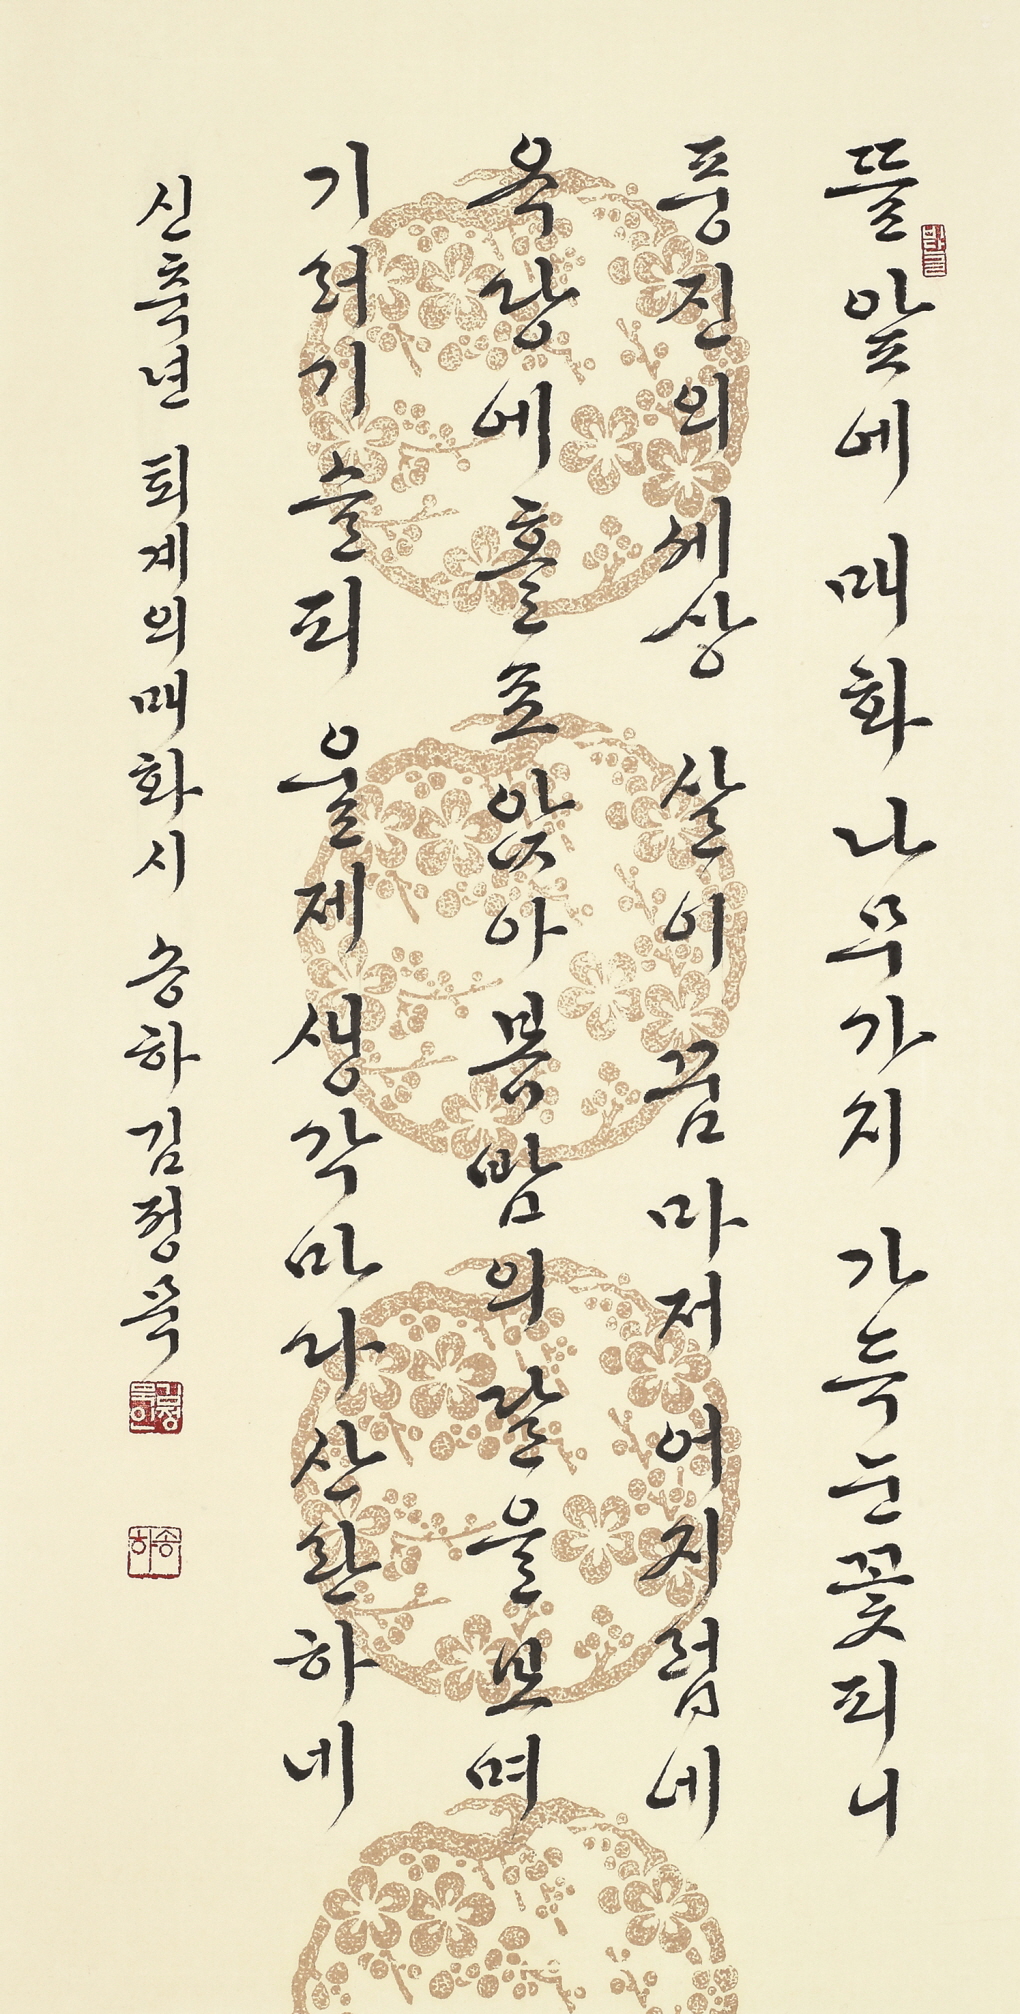 뜰 앞에 매화나무가지 가득 눈꽃피니
풍진의 세상 살이 꿈마저 어지럽네
옥당에 홀로 앉아 봄밤의 달을 보며
기러기 슬피 울제 생각마다 산란하네
신축년 퇴계의매화시 송하 김정묵